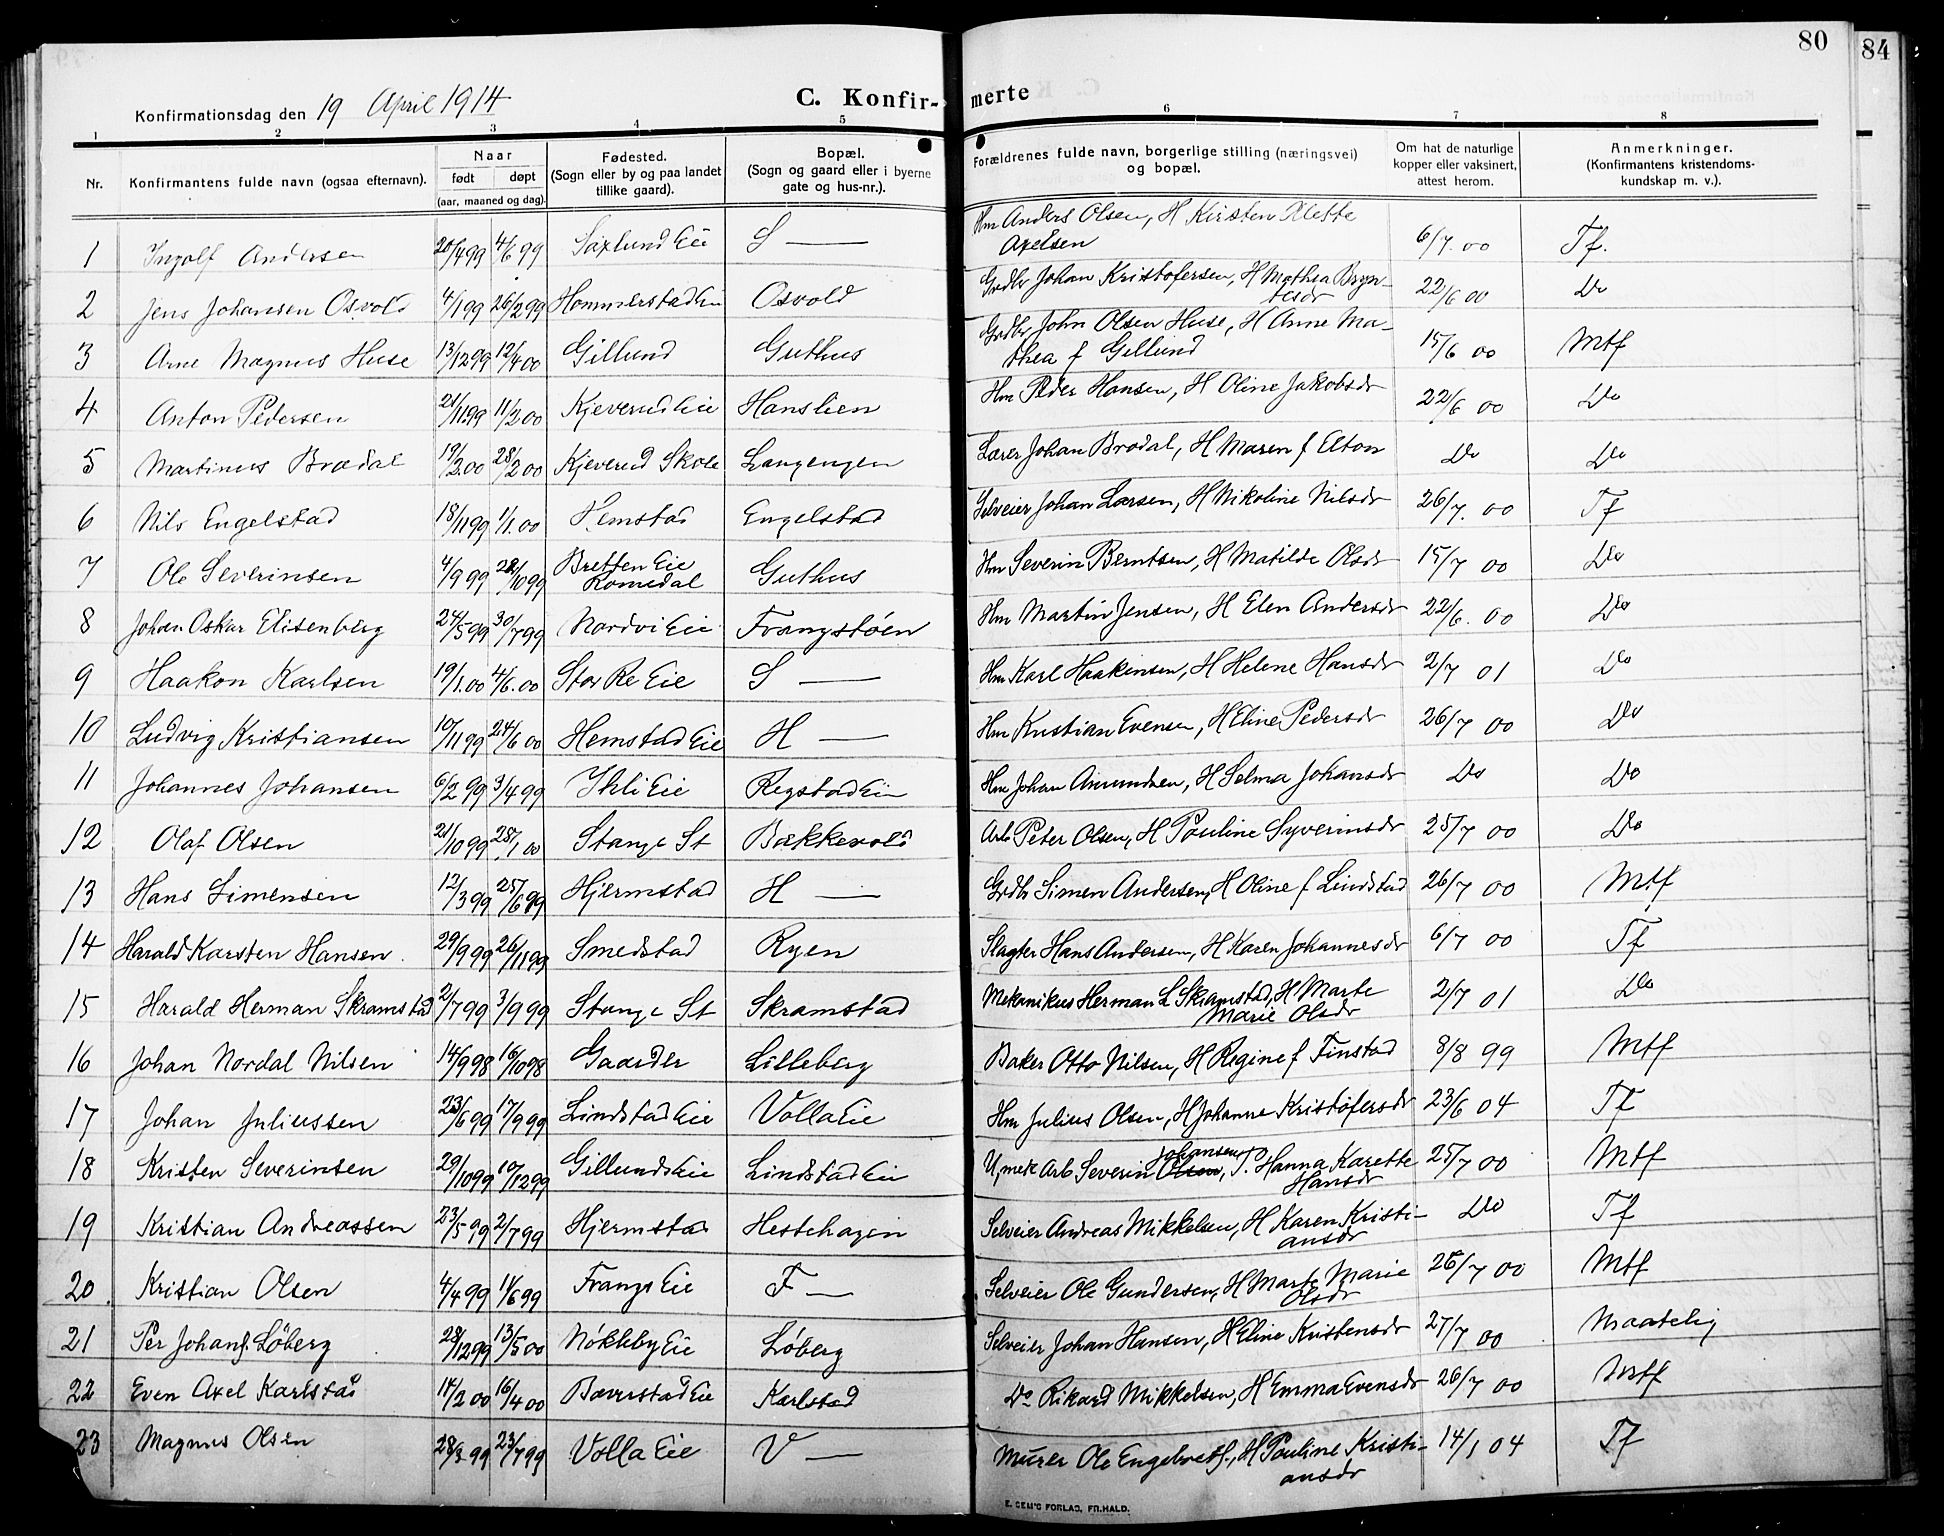 80
84
Konfirmationsdag den 19 April 1914
C. Konfir- merte
1 2 3 4 5 6 7 8
Nr. | Konfirmantens fulde navn (ogsaa efternavn). | Naar født døpt (aar, maaned og dag). | Fødested. (Sogn eller by og paa landet tillike gaard). | Bopæl. (Sogn og gaard eller i byerne gate og hus-nr.). | Forældrenes fulde navn, borgerlige stilling (næringsvei) og bopæl. | Om hat de naturlige kopper eller vaksinert, attest herom. | Anmerkninger. (Konfirmantens kristendoms- kundskap m. v.).
1 Ingolf Andersen 20/4 99 4/6 99 Saxlund Eie S — Hm Anders Olsen, H Kirsten Axelsen 6/7. 00 Tf.
2 Jens Johansen Osvold 4/1 99 26/2 99 Hommerstad Eie Osvold Grdbr Johan Kristofersen, H Mathea Bryn- 22/6 00 Do
3 Arne Magnus Huse 13/12 99 12/4 00 Gillund Guthus Grdbr John Olsen Huse, H Anne Ma- thea f Gillund 15/6 00 Mtf
4 Anton Pedersen 21/11 99 11/2 00 Kjeverud Eie Hanslien Hm Peder Hansen, H Oline Jakobsdr 22/6 00 Do
5 Martinus Brodal 19/2.00 28/2 00 Kjeverud Skole Langengen Lærer Johan Brodal, H Maren f Elton Do Do
6 Nils Engelstad 18/11 99 1/1.00 Hemstad Engelstad Selveier Johan Larsen, H Nikoline Nilsdr 26/7. 00 Tf
7 Ole Severinsen 4/9 99 22/10 99 Bretten Eie Romedal Guthus Hm Severin Berntsen, H Matilde Olsdr 15/7 00 Do
8 Johan Oskar Elisenberg 24/5 99 30/7 99 Nordvi Eie Frangstøen Hm Martin Jensen, H Elen Andersdr 22/6. 00 Do
9 Haakon Karlsen 19/1.00 4/6.00 Stor Re Eie S — Hm Karl Haakinsen, H Helene Hansdr 2/7 01 Do
10 Ludvig Kristiansen 10/11 99 24/6 00 Hemstad Eie H — Hm Kristian Evensen, H Eline Pedersdr 26/7 00 Do
11 Johannes Johansen 6/2 99 3/4 99 Ihli Eie Regstad Eie Hm Johan Amundsen, H Selma Johansdr Do Do
12 Olaf Olsen 21/10 99 28/1 00 Stange St Bækkevold Arb Peter Olsen, H Pauline Syverinsdr 25/7 00 Do
13 Hans Simensen 12/3 99 25/6 99 Hjermstad H — Grdbr Simen Andersen, H Oline f Lindstad 26/7 00 Mtf
14 Harald Karsten Hansen. 29/9 99 26/11 99 Smedstad Ryen Slagter Hans Andersen, H Karen Johannesdr 6/7 00 Tf
15 Harald Herman Skramstad 2/7 99 3/9 99 Stange St Skramstad Mekanikus Herman L Skramstad, H Marte Marie Olsdr 2/7 01 Do
16 Johan Nordal Nilsen 14/9 98 16/10 98 Gaarder Lilleberg Baker Otto Nilsen, H Regine f Finstad 8/8 99 Mtf
17 Johan Juliussen 23/6 99 17/9 99 Lindstad Eie Volla Eie Hm Julius Olsen, H Johanne Kristofersdr 23/6 04 Tf
18 Kristen Severinsen 29/10 99 10/12 99 Gillunds Eie Lindstad Eie Arb Severin Olsen Johansen, P. Hanna Karette Hansdr 25/7 00 Mtf
19 Kristian Andreassen 23/5 99 2/7 99 Hjermstad Hestehagen Selveier Andreas Mikkelsen, H Karen Kristi- ansdr Do Tf
20 Kristian Olsen 4/4 99 11/6 99 Frangs Eie F — Selveier Ole Gundersen, H Marte Marie Olsdr 25/7 00 Mtf
21 Per Johans. Løberg 28/12 99 13/5 00 Nøkleby Eie Løberg Selveier Johan Hansen, H Eline Kristensdr 27/7 00 Maatelig
22 Even Axel Karlstad 14/2 00 16/4 00 Bæverstad Eie Karlstad Do Rikard Mikkelsen, H Emma Evensdr 26/7 00 Mtf
23 Magnus Olsen 28/3 99 23/7 99 Volla Eie V — Murer Ole Engebretf., H Pauline Kristi- ansdr 14/1 04 Tf
E. SEM'S FORLAG, FR.HALD.